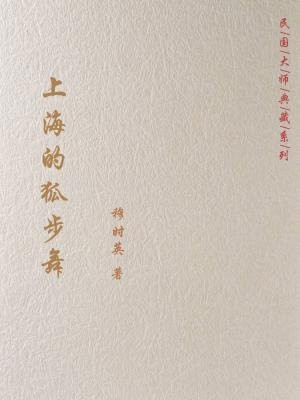 民|国|大|师|典|藏|系|列
上海的狐步舞
穆时英 著